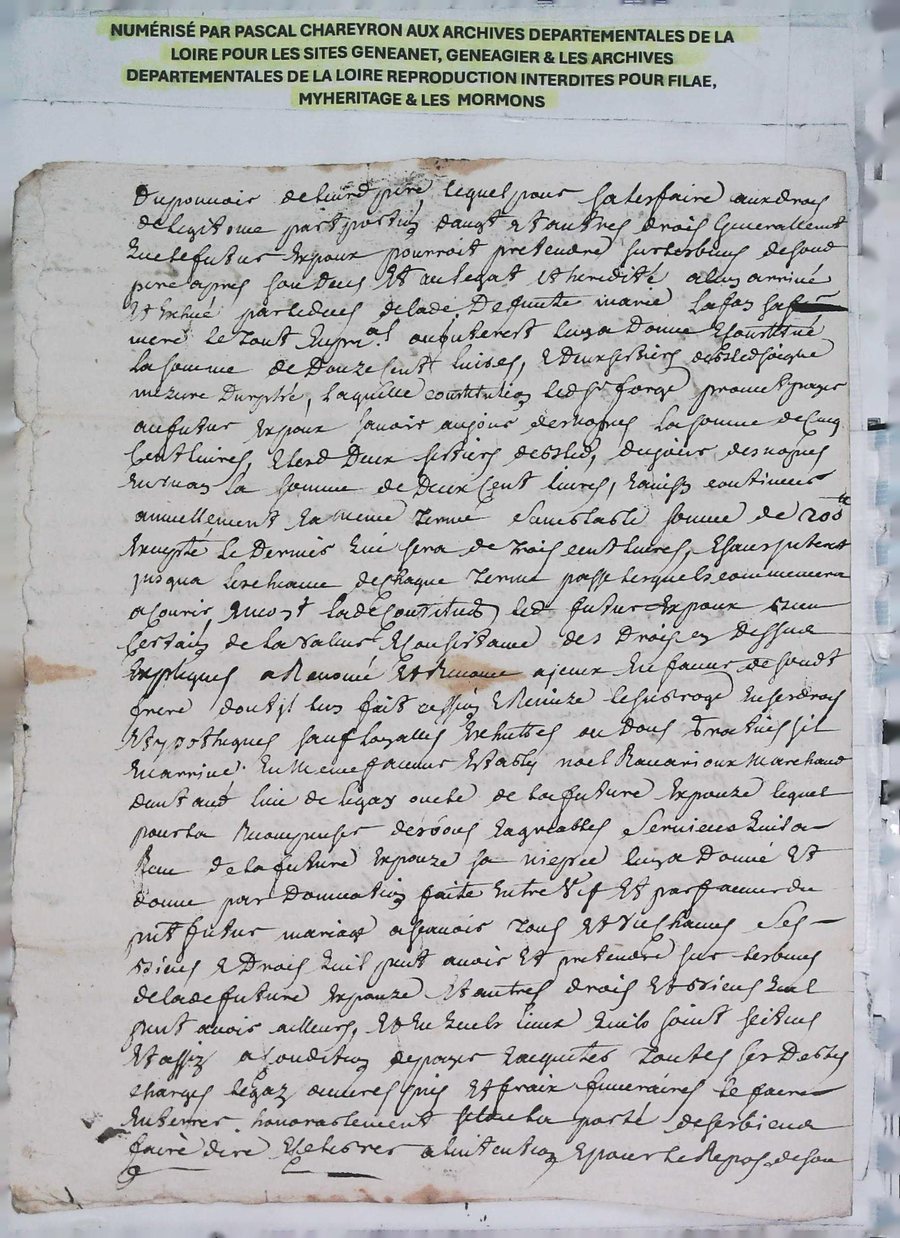 NUMÉRISÉ PAR PASCAL CHAREYRON AUX ARCHIVES DEPARTEMENTALES DE LA
LOIRE POUR LES SITES GENEANET, GENEAGIER & LES ARCHIVES
DEPARTEMENTALES DE LA LOIRE REPRODUCTION INTERDITES POUR FILAE,
MYHERITAGE & LES MORMONS
Dupouvoir de sond pere, lequel pour satisfaire aux drois
de legitime part portion daugt et autres drois Generallement
que le futur Expoux pourroit pretendre sur les biens de sond
pere apres son deces Et au legat et heredité a luy arrivé
Et Eschué par le deces de lade Defunte marie Lafon sa
mere le Tout luy a Donne Et constitué
la somme de Douze Cent livres, & Deux septiers de bled seigle
mezure Durphé, laquelle constitution ledsr forge promet payer
au futur Expoux scavoir aujour desnopces La somme de Cinq
Cent livres, & lesd Deux septiers de bled, du jour desnopces
En un an la somme de Deux Cent livres, & ainsy continuer
annuellement En meme Terme Semblable somme de 200
Excepté le Dernier qui sera de Trois cent livres, & sans jnterest
jusqua lescheance dechaque Terme passé lesquels commencera
a courir, lade Constitution led futur Expoux bien
Certain de la valeur & Consistance des Drois cy Dessus
Expliqués a Renoncé Et Renonce a jceux En faveur de sondt
frere dont jl luy fait cession & Remize le subroge En ses drois
Et ypotheques sauf Loyalles Eschuttes ou Dons
En arrive. En Meme faveur Estably noel Marchand
oncle de la future Expouze lequel
pour la Recompenser des bons & agreables Services quil a
Receu de la future Expouze sa niepce luy a Donné Et
donne par Donnation faite Entre Vif Et par faveur du
pnt futur mariage ascavoir Tous Et Ses
biens & Drois quil peut avoir Et pretendre sur les biens
de lade future Expouze Et autres drois Et biens quil
peut avoir ailleurs, Et En quels lieux quils soint scitues
Et assiz a Condition de payer & acquiter Toutes ses Debtes
charges legaz Et fraix funeraires le faire
Enterrer honorablement selon la porté de ses biens
faire dire & Celebrer a lintention & pour le Repos de son